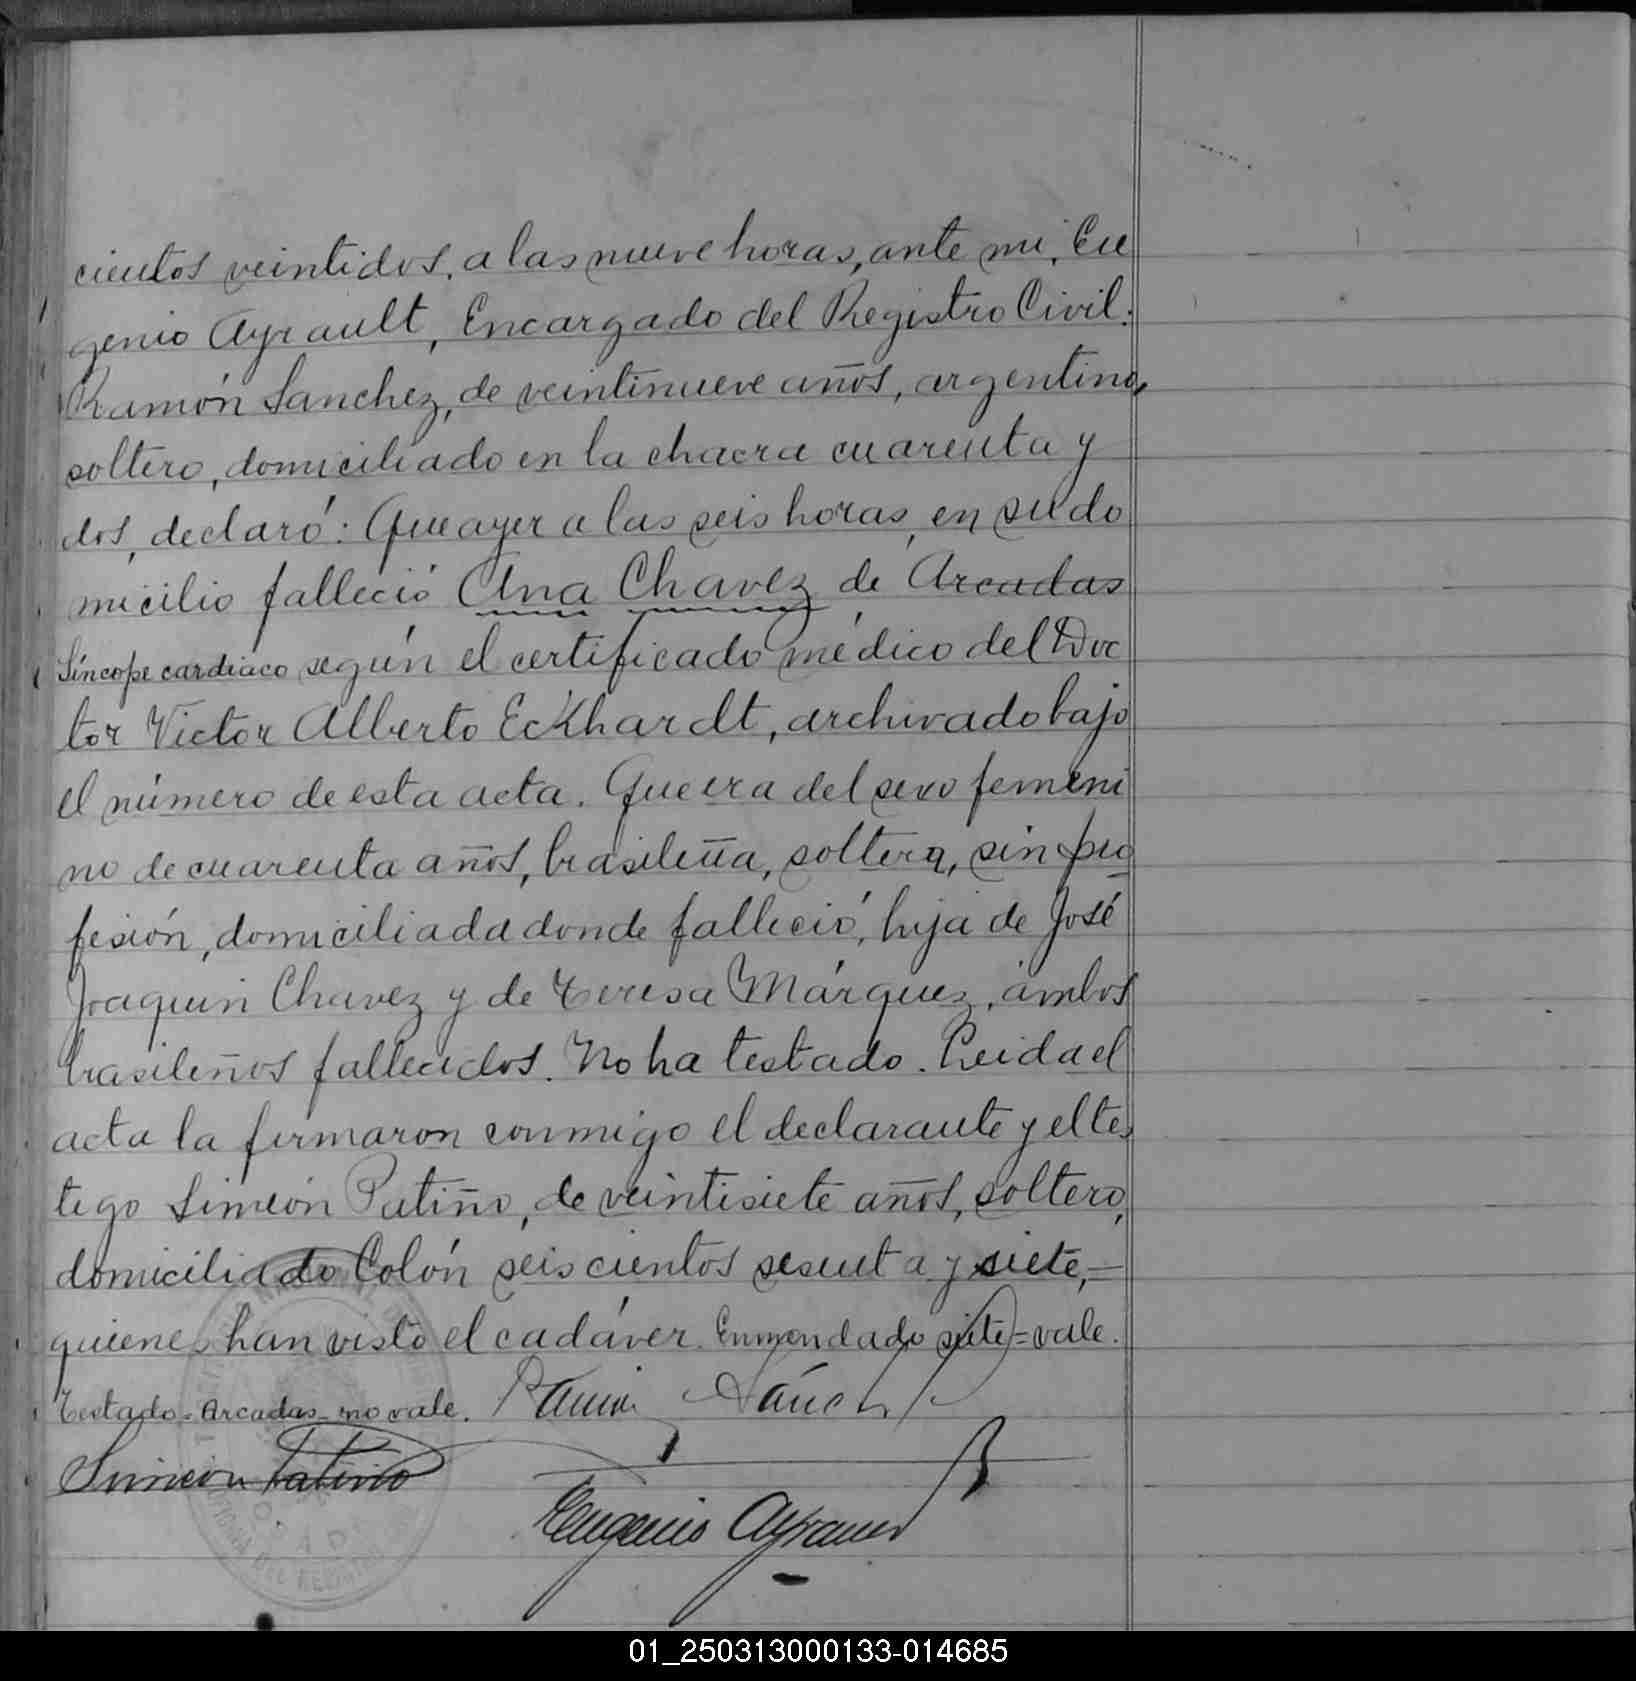 cientos veintidos, a las nueve horas, ante mi, Eu
genio Ayrault, Encargado del Registro Civil:
Ramón Sanchez, de veintinueve años, argentino,
soltero, domiciliado en la chacra cuarenta y
dos, declaró: Que ayer a las seis horas, en su do
micilio falleció Ana Chavez de Arcadas
Síncope cardiaco según el certificado médico del Doc
tor Victor Alberto Eckhardt, archivado bajo
el número de esta acta. Que era del sexo femeni
no de cuarenta años, brasileña, soltera, sin pro
fesión, domiciliada donde falleció, hija de José
Joaquin Chavez y de Teresa Márquez, ámbos
brasileños fallecidos. No ha testado. Leida el
acta la firmaron conmigo el declarante y el tes
tigo Simeón Patiño, de veintisiete años, soltero,
domiciliado Colón seiscientos sesenta y siete,—
quienes han visto el cadáver. Enmendado siete=vale.
Testado=Arcadas=no vale. Ramón Sánchez
Simeon Patiño
Eugenio Ayrault
01_250313000133-014685